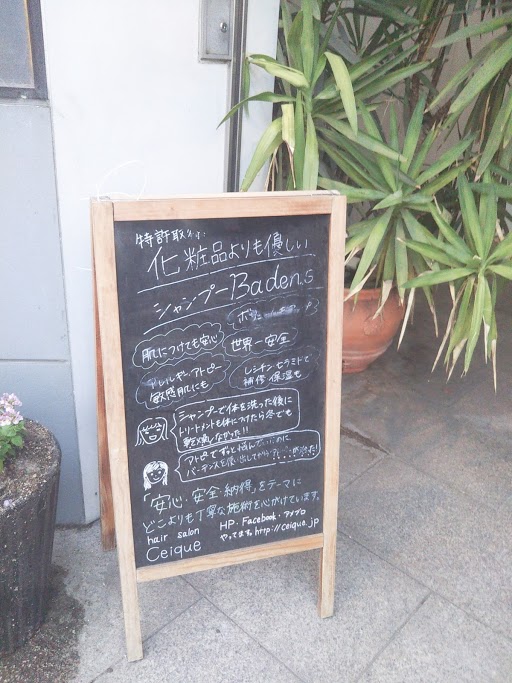 特許取得!
化粧品よりも優しい
シャンプーBadens
肌につけても安心
世界一安全
アレルギー、アトピー
敏感肌にも
レシチン セラミドで
補修 保湿も
シャンプーで体を洗った後に
トリートメントも体につけたら冬でも
乾燥しなかった!!
アトピーでずっと悩んでいたのに
バーデンスを使い出してから
「安心・安全・納得」をテーマに
どこよりも丁寧な施術を心がけています。
hair salon
Ceique
HP・Facebook・アメブロ
やってます。http://ceique.jp